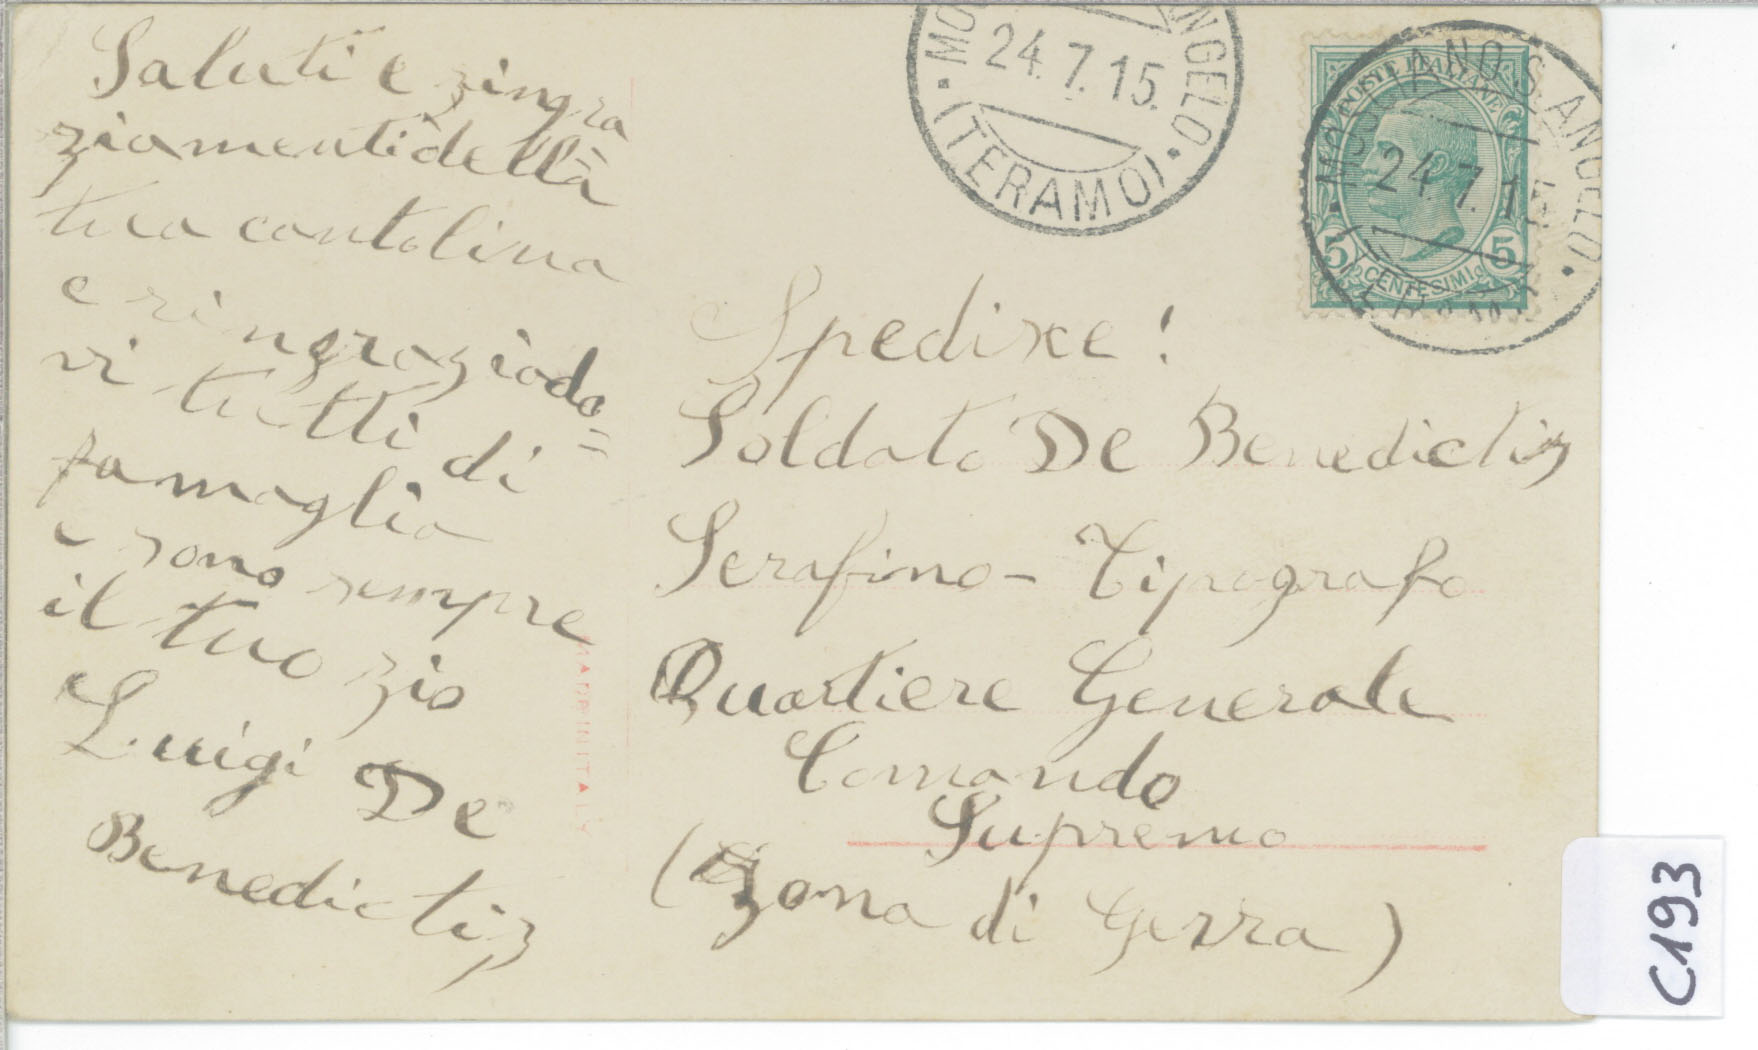 Saluti e zingra
ziamenti della
tua cantolina
e ringraziado=
vi tutti di
famaglia
e sono sempre
il tuo zio
Luigi De
Benedictis
MADE IN ITALY
24.7.15.
(TERAMO)
POSTE ITALIANE
MOSCIANO S. ANGELO
24.7.15
5 CENTESIMI 5
Spedixce!
Soldato De Benedictis
Serafino - Tipografo
Quartiere Generale
Comando
Supremo
(Zona di Gerra)
C193